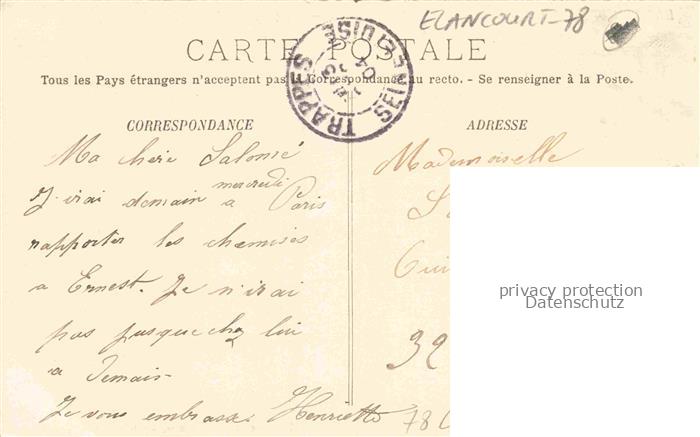 ELANCOURT-78
CARTE POSTALE
Tous les Pays étrangers n'acceptent pas la Correspondance au recto. - Se renseigner à la Poste.
TRAPPES
SEINE-ET-OISE
CORRESPONDANCE
Ma chère Salomé
mercredi
J'irai demain a Paris
rapporter les chemises
a Ernest. Je n'irai
pas jusque chez lui
a Demain
Je vous embrasse. Henriette
ADRESSE
Mademoiselle
39
78
privacy protection
Datenschutz